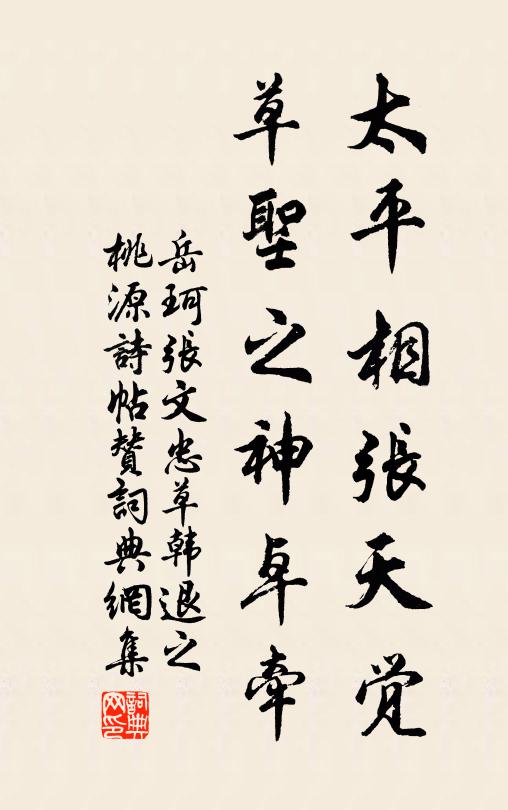 太平相張天覺
草聖之神卓牽
岳珂張文忠草韩退之
桃源詩帖贊詞典網集
詞典网印